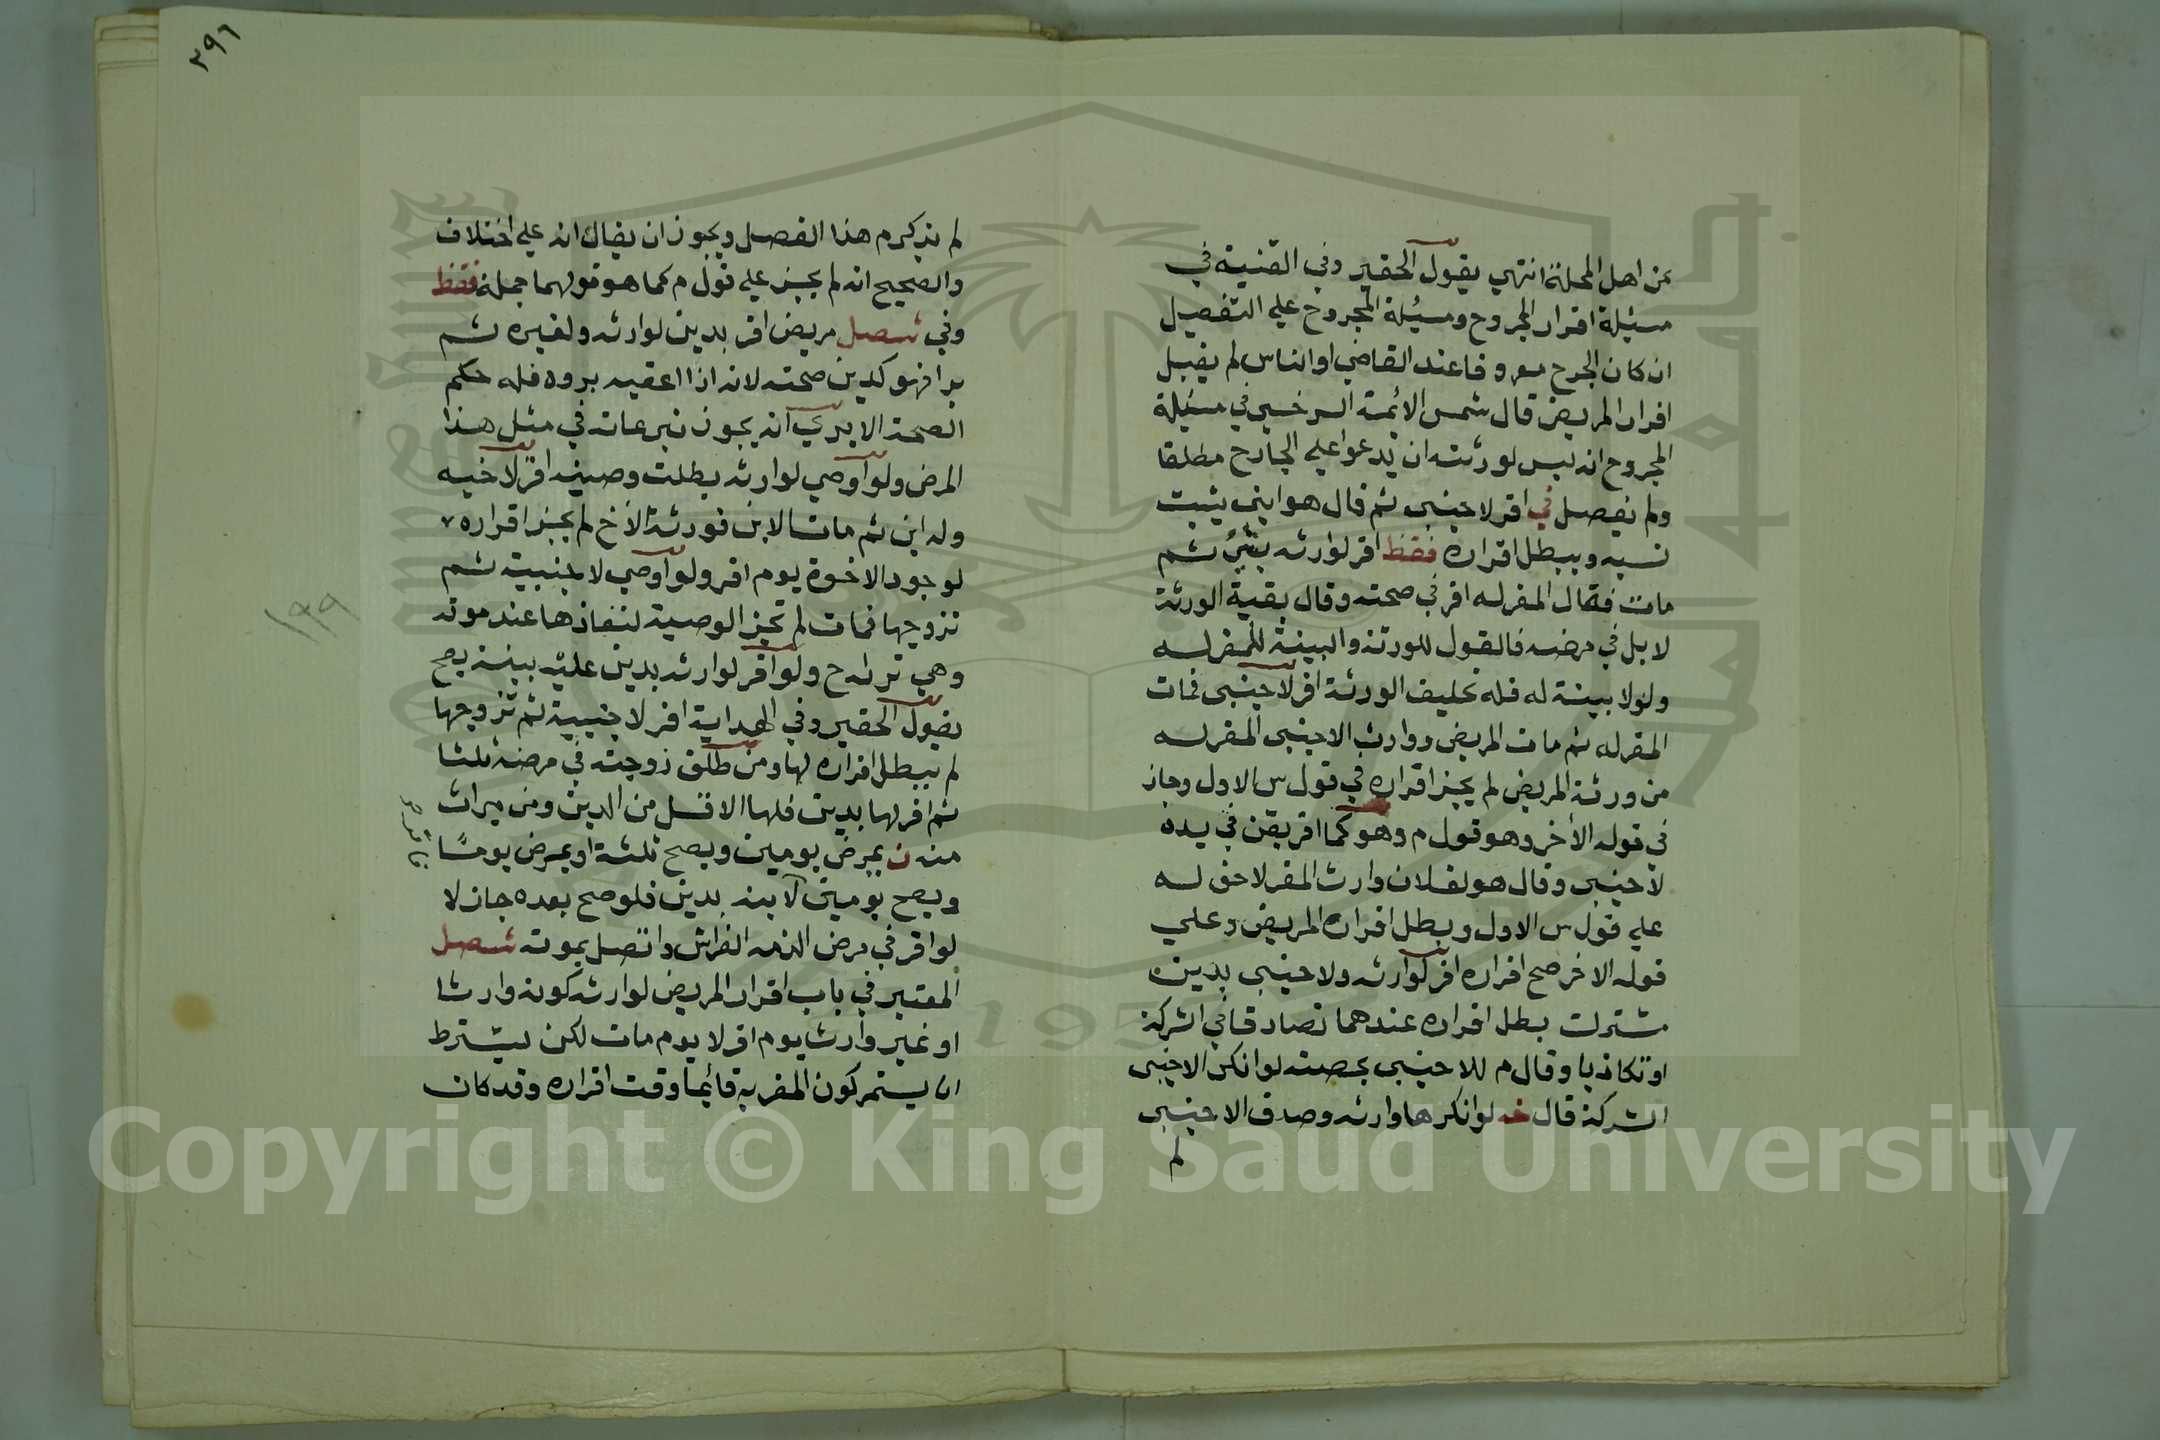 من اهل المحلة انتهي يقول الحقير وفي القنية في
مسئلة اقرار المجروح ومسئلة المجروح علي التفصيل
ان كان الجرح معروفا عند القاضي او الناس لم يقبل
اقرار المريض قال شمس الائمة السرخسي في مسئلة
المجروح انه ليس لورثته ان يدعوا علي الجارح مطلقا
ولم يفصل في اقر لاجنبي ثم قال هو ابني يثبت
نسبه ويبطل اقراره فقظ اقر لوارثه بشئ ثم
مات فقال المقر له اقر في صحته وقال بقية الورثة
لا بل في مرضه فالقول للورثة والبينة للمقر له
ولولا بينة له فله تحليف الورثة اقر لاجنبي فمات
المقر له ثم مات المريض ووارث الاجنبي المقر له
من ورثة المريض لم يجز اقراره في قول س الاول وجاز
في قوله الأخر وهو قول م وهو كما اقر بقن في يده
لاجنبي وقال هو لفلان وارث المقر لا حق له
علي قول س الاول وبطل اقراره المريض وعلي
قوله الاخر صح اقراره اقر لوارثه ولاجنبي بدين
مشترك بطل اقراره عندهما تصادقا في الشركة
او تكاذبا وقال م للاجنبي بحصته لو انكر الاجنبي
الشركة قال خه لو انكرها وارثه وصدق الاجنبي
لم
٢٩٦
لم يذكر م هذا الفصل ويجوز ان يقال انه علي اختلاف
والصحيح انه لم يجز علي قول م كما هو قولهما جملة فقظ
وفي شصل مريض اقر بدين لوارثه ولغيره ثم
برا فهو كدين صحته لانه اذا اعقبه بروه فله حكم
الصحة الا يري انه يجوز تبرعاته في مثل هذا
المرض ولو اوصي لوارثه بطلت وصيته اقر لاخيه
وله ابن ثم مات الابن فورثه الأخ لم يجز اقراره
لوجود الاخوة يوم اقر ولو اوصي لاجنبية ثم
تزوجها فمات لم تجز الوصية لنفاذها عند موته
وهي ترثه ح ولو اقر لوارثه بدين عليه بينة يصح
يقول الحقير وفي الهداية اقر لاجنبية ثم تزوجها
لم يبطل اقراره لها ومن طلق زوجته في مرضه ثلثا
ثم اقر لها بدين فلها الاقل من الدين ومن ميراث
منه ن يمرض يومين ويصح ثلثة او يمرض يوما
ويصح يومين لابنه بدين فلو صح بعده جاز لا
لو اقر في مرض الزمه الفراش واتصل بموته شصل
المعتبر في باب اقرار المريض لوارثه كونه وارثا
او غير وارث يوم اقر لا يوم مات لكن يشترط
ان يستمر كون المقر به قائما وقت اقراره وقد كان
١٣٩
Copyright © King Saud University
195